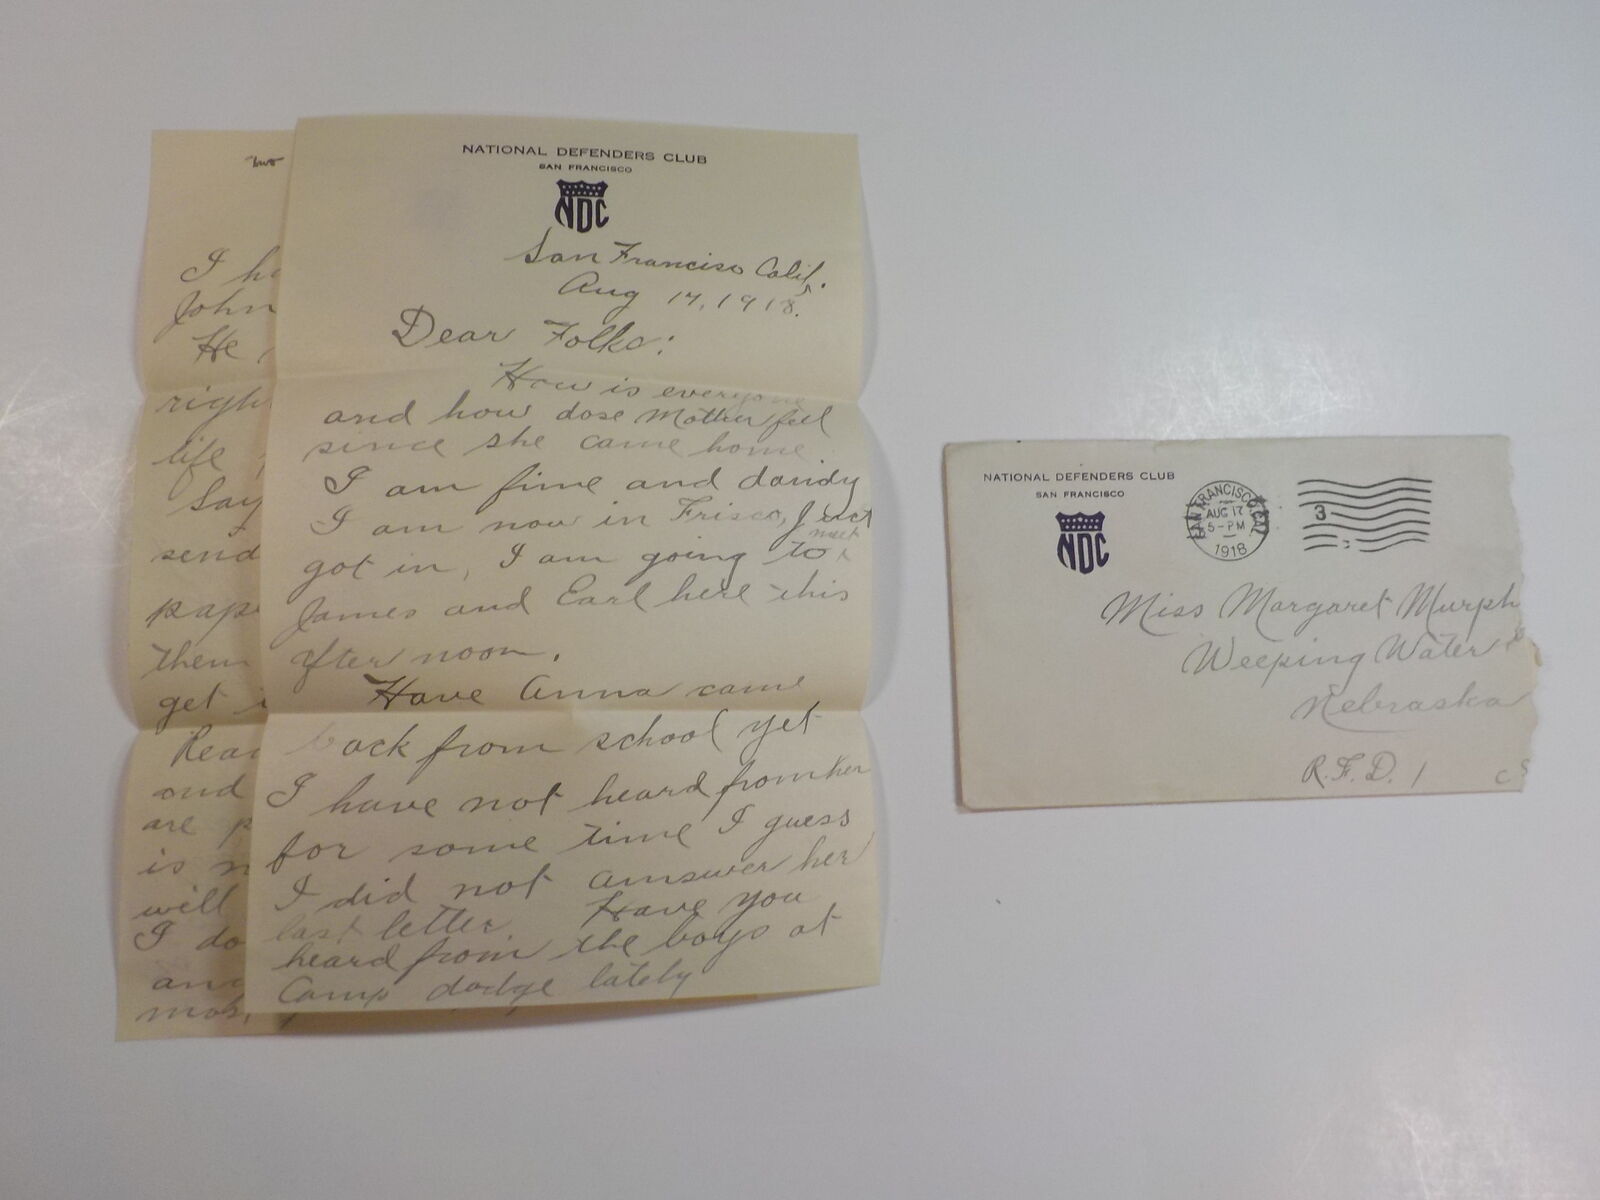 two
I
John
He
right
life
Say
send
them
get
Read
and
are
is
will
I do
and
NATIONAL DEFENDERS CLUB
SAN FRANCISCO
NDC
San Francisco Calif.
Aug 17, 1918.
Dear Folks:
How is everyone
and how dose Mother feel
since she came home
I am fine and dandy
I am now in Frisco, Just
got in, I am going to meet
James and Earl here this
after noon.
Have Anna came
back from school yet
I have not heard from her
for some time I guess
I did not amswer her
last letter. Have you
heard from the boys at
Camp dodge lately
NATIONAL DEFENDERS CLUB
SAN FRANCISCO
NDC
SAN FRANCISCO CAL.
AUG 17
5-PM
1918
3
Miss Margaret Murph
Weeping Water
Nebraska
R.F.D. 1